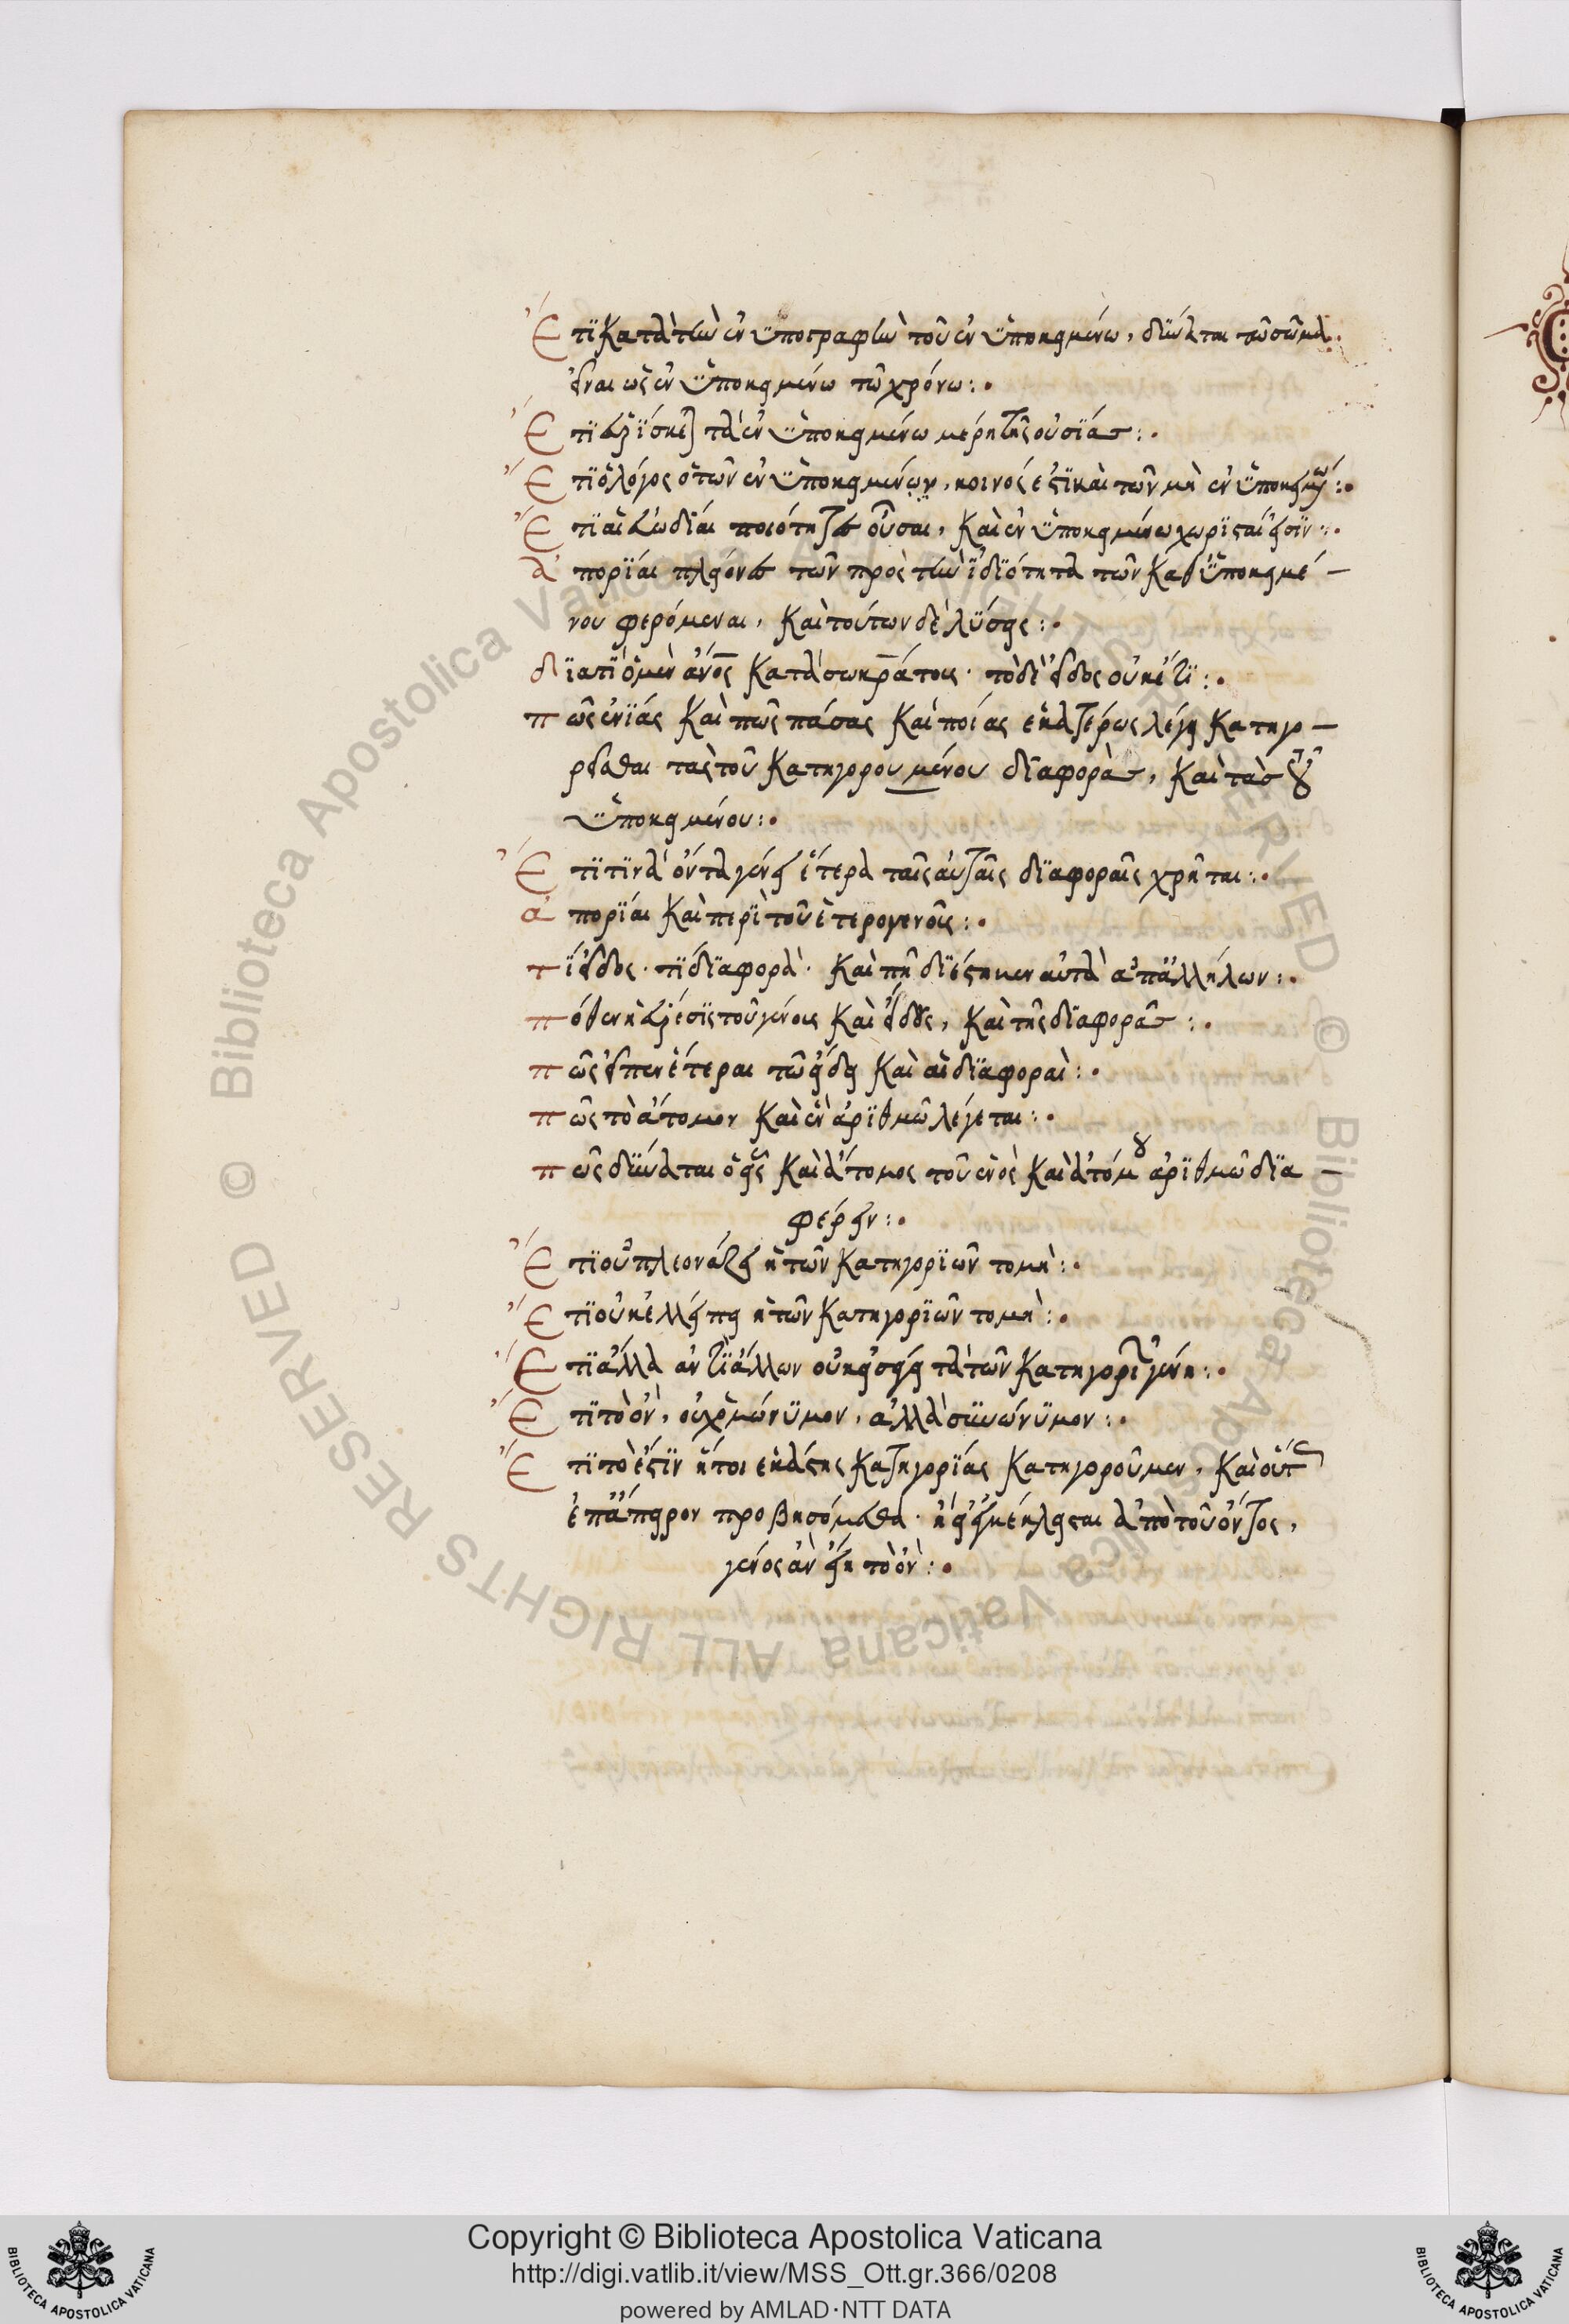 Ἔτι κατὰ τὴν ἐν ὑπογραφὴν τοῦ ἐν ὑποκειμένω, δύναται τὸ σῶμα
εἶναι ὡς ἐν ὑποκειμένω τῶ χρόνω:
Ἔτι εὑρίσκεται τὰ ἐν ὑποκειμένω μέρη τῆς οὐσίας:
Ἔτι ὁ λόγος ὁ τῶν ἐν ὑποκειμένων, κοινός ἐστι καὶ τῶν μὴ ἐν ὑποκειμένω:
Ἔτι αἱ εὐωδίαι ποιότητες οὖσαι, καὶ ἐν ὑποκειμένω χωρισταί εἰσιν:
ἀπορίαι πλείονες τῶν πρὸς τὴν ἰδιότητα τῶν καθ ὑποκειμέ-
νου φερόμεναι, καὶ τούτων δὲ λύσεις:
διατί ὁ μὲν ἄνος κατὰ σωκράτους. τὸ δὲ εἶδος οὐκέτι:
πῶς ἐνίας καὶ πῶς πάσας καὶ ποίας ἑκατέρως λέγει κατηγο-
ρεῖσθαι τὰς τοῦ κατηγορουμένου διαφορὰς, καὶ τὰς τοῦ
ὑποκειμένου:
Ἔτι τινὰ ὄντα γένει ἕτερα ταῖς αὐταῖς διαφοραῖς χρῆται:
ἀπορίαι καὶ περὶ τοῦ ἑτερογενοῦς:
τί εἶδος. τί διαφορὰ. καὶ πῆ διέστηκεν αὐτὰ ἀπ ἀλλήλων:
πόθεν ἡ εὕρεσις τοῦ γένους καὶ εἴδους, καὶ τῆς διαφορᾶς:
πῶς εἶπεν ἕτεραι τῶ εἴδει καὶ αἱ διαφοραὶ:
πῶς τὸ ἄτομον καὶ ἓν ἀριθμῶ λέγεται:
πῶς δύναται ὁ εἷς καὶ ἄτομος τοῦ ἑνὸς καὶ ἀτόμου ἀριθμῶ δια-
φέρειν:
Ἔτι οὐ πλεονάζει ἡ τῶν κατηγοριῶν τομὴ:
Ἔτι οὐκ ἐλλείπει ἡ τῶν κατηγοριῶν τομὴ:
Ἔτι ἄλλα ἀντὶ ἄλλων οὐκ εἰσάγει τὰ τῶν κατηγοριῶν γένη:
Ἔτι τὸ ὂν, οὐχ ὁμώνυμον, ἀλλὰ συνώνυμον:
Ἔτι τὸ ἔστιν ἤτοι ἑκάστης κατηγορίας κατηγοροῦμεν, καὶ οὕτως
ἐπ ἄπειρον προβησόμεθα. ἢ εἰ κέκληται ἀπὸ τοῦ ὄντος,
γένος ἂν εἴη τὸ ὂν:
Copyright © Biblioteca Apostolica Vaticana
http://digi.vatlib.it/view/MSS_Ott.gr.366/0208
powered by AMLAD·NTT DATA